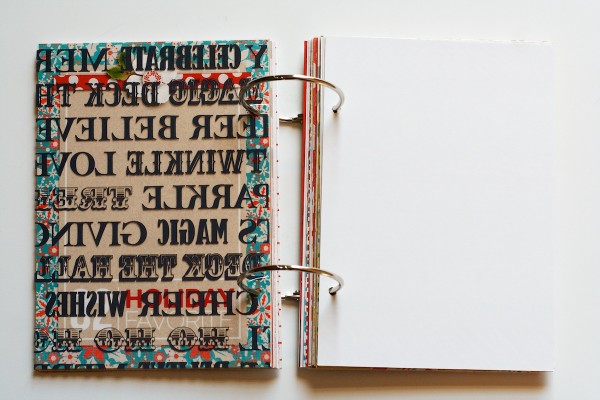 Y CELEBRATE MER
MAGIC DECK TH
EER BELIEVE
TWINKLE LOVE
PARKLE TREE
S MAGIC GIVING
DECK THE HALL
CHEER WISHES
HOLIDAY
FAVORITE
HO HO